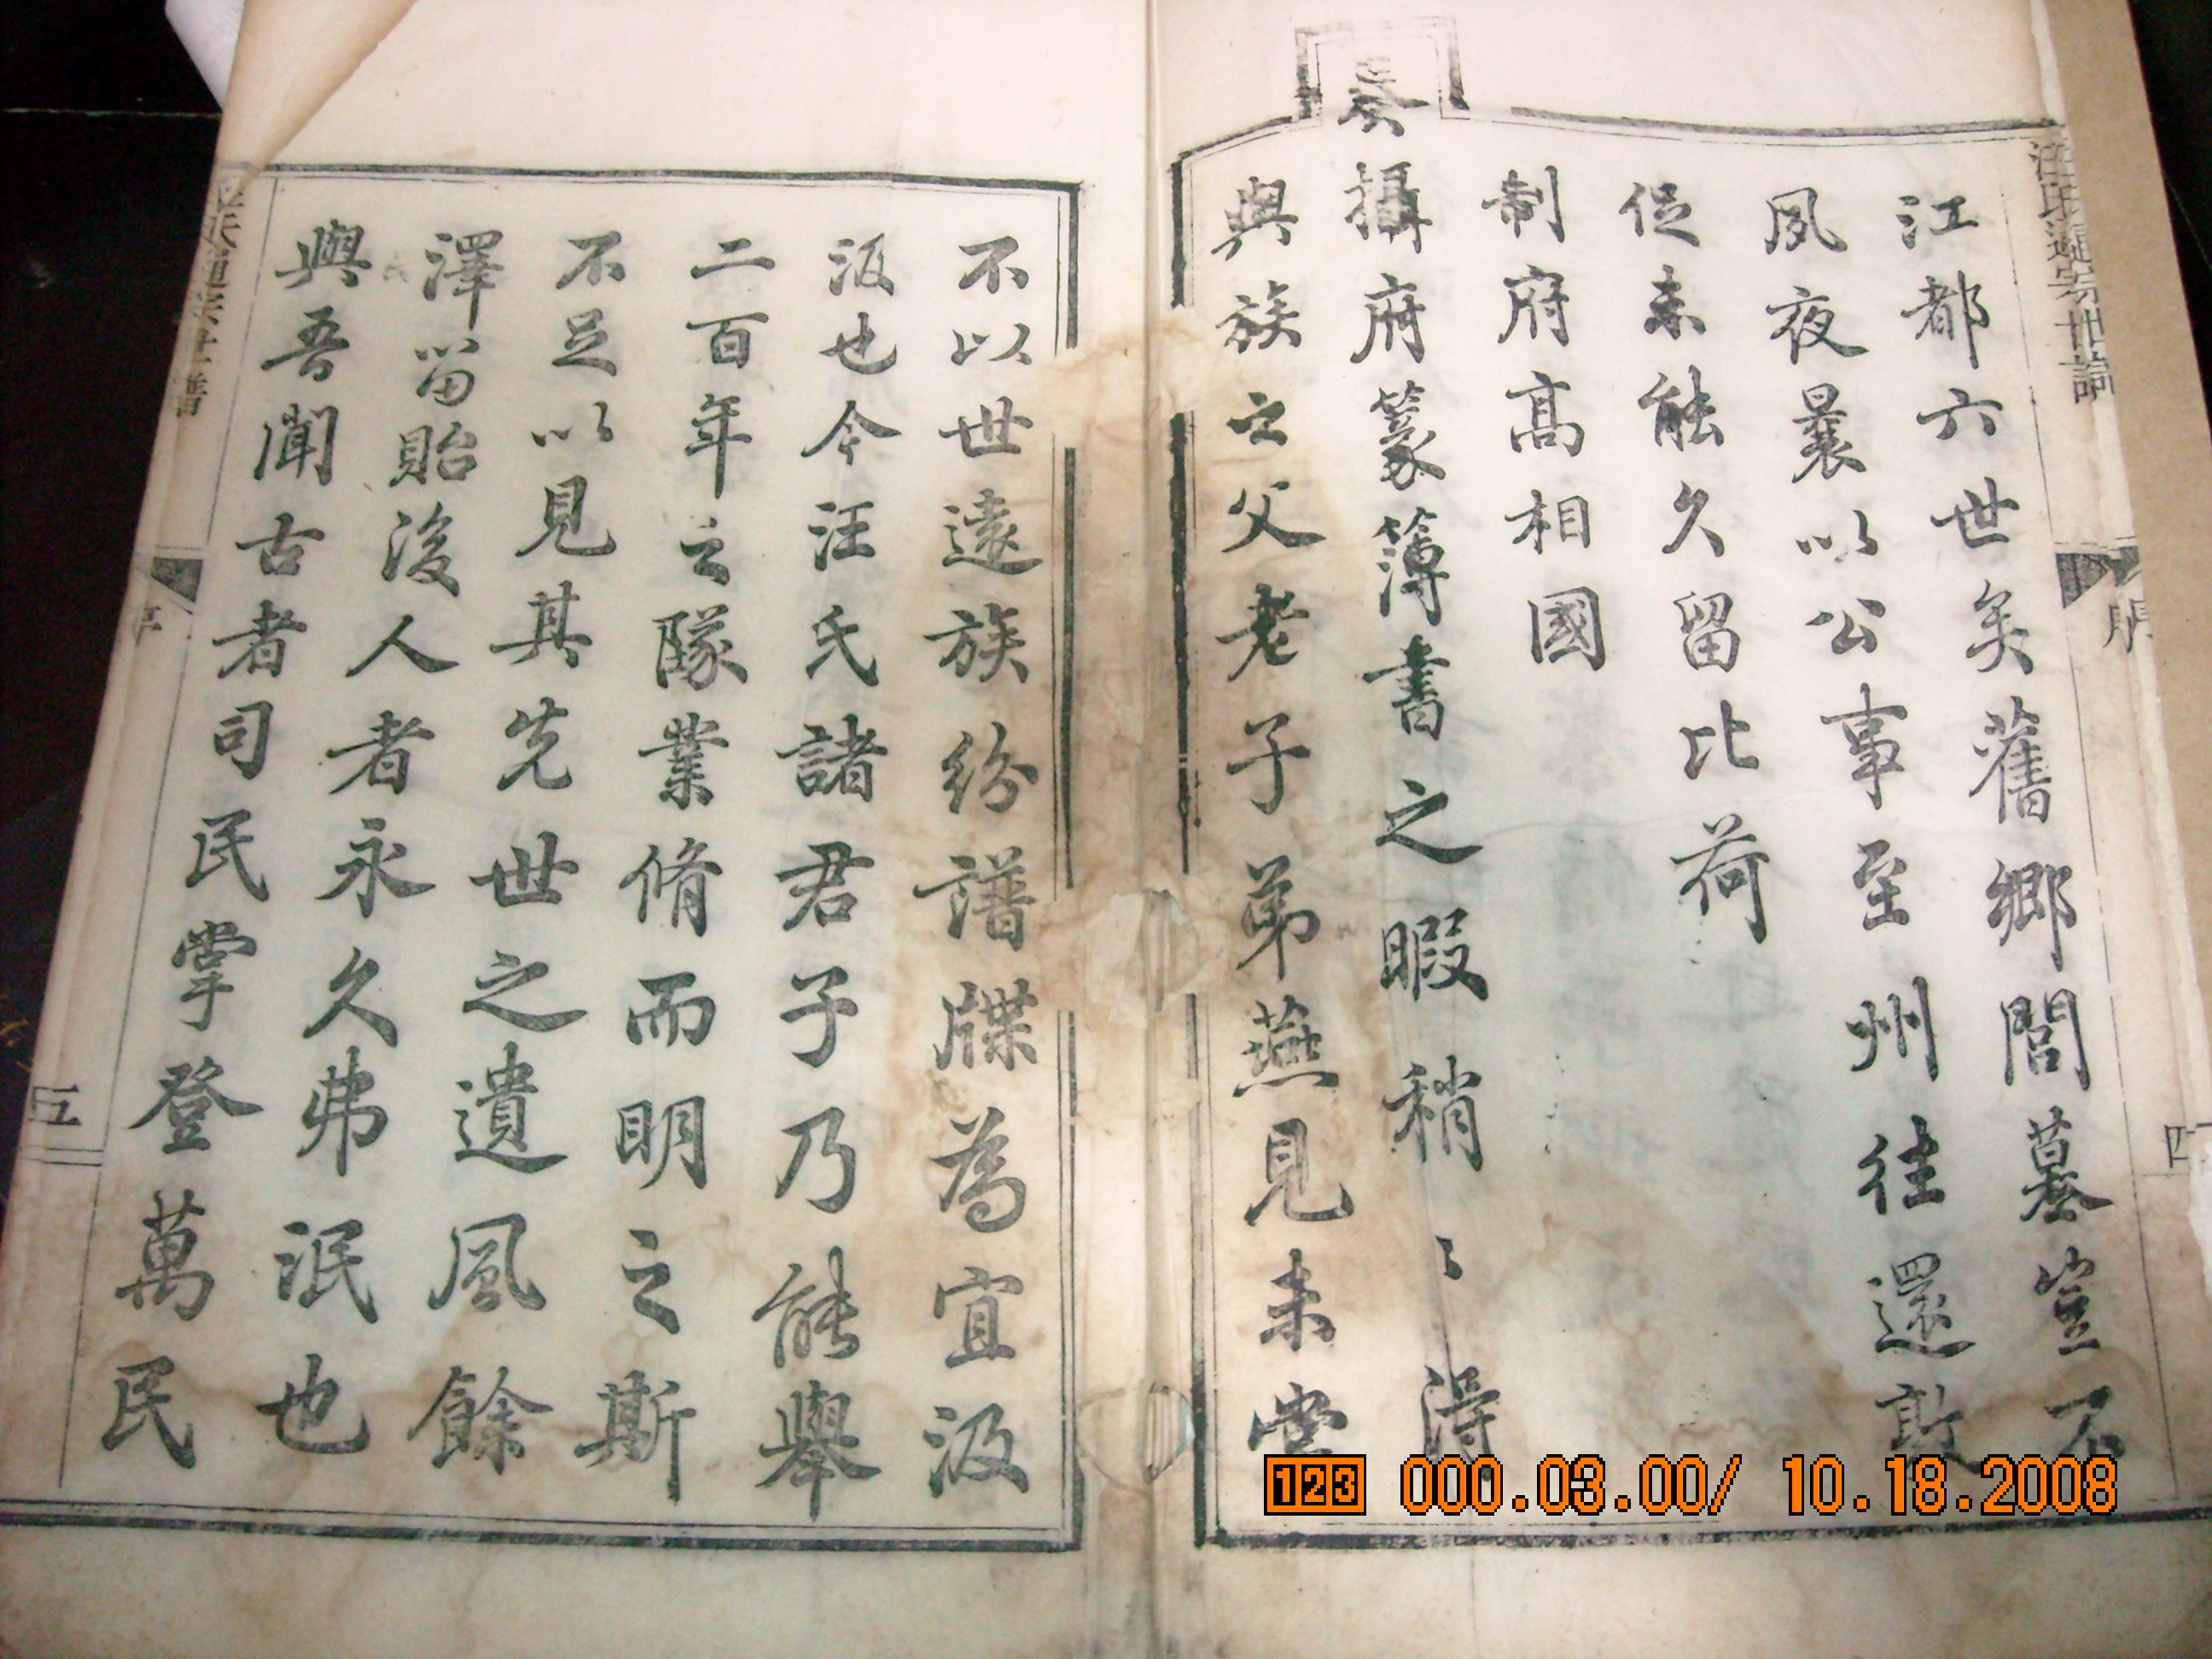 江都六世矣舊鄉閭墓豈不
夙夜曩以公事至州往還敦
促未能久留比荷
制府高相國
奏攝府篆簿書之暇稍〻得
與族之父老子弟燕見未嘗
不以世遠族紛譜牒為宜汲
汲也今汪氏諸君子乃能舉
二百年之隊業脩而明之斯
不足以見其先世之遺風餘
澤留貽後人者永久弗泯也
與吾聞古者司民掌登萬民
汪氏通宗世譜
序
四
氏通宗世譜
序
五
123 000.03.00/ 10.18.2008